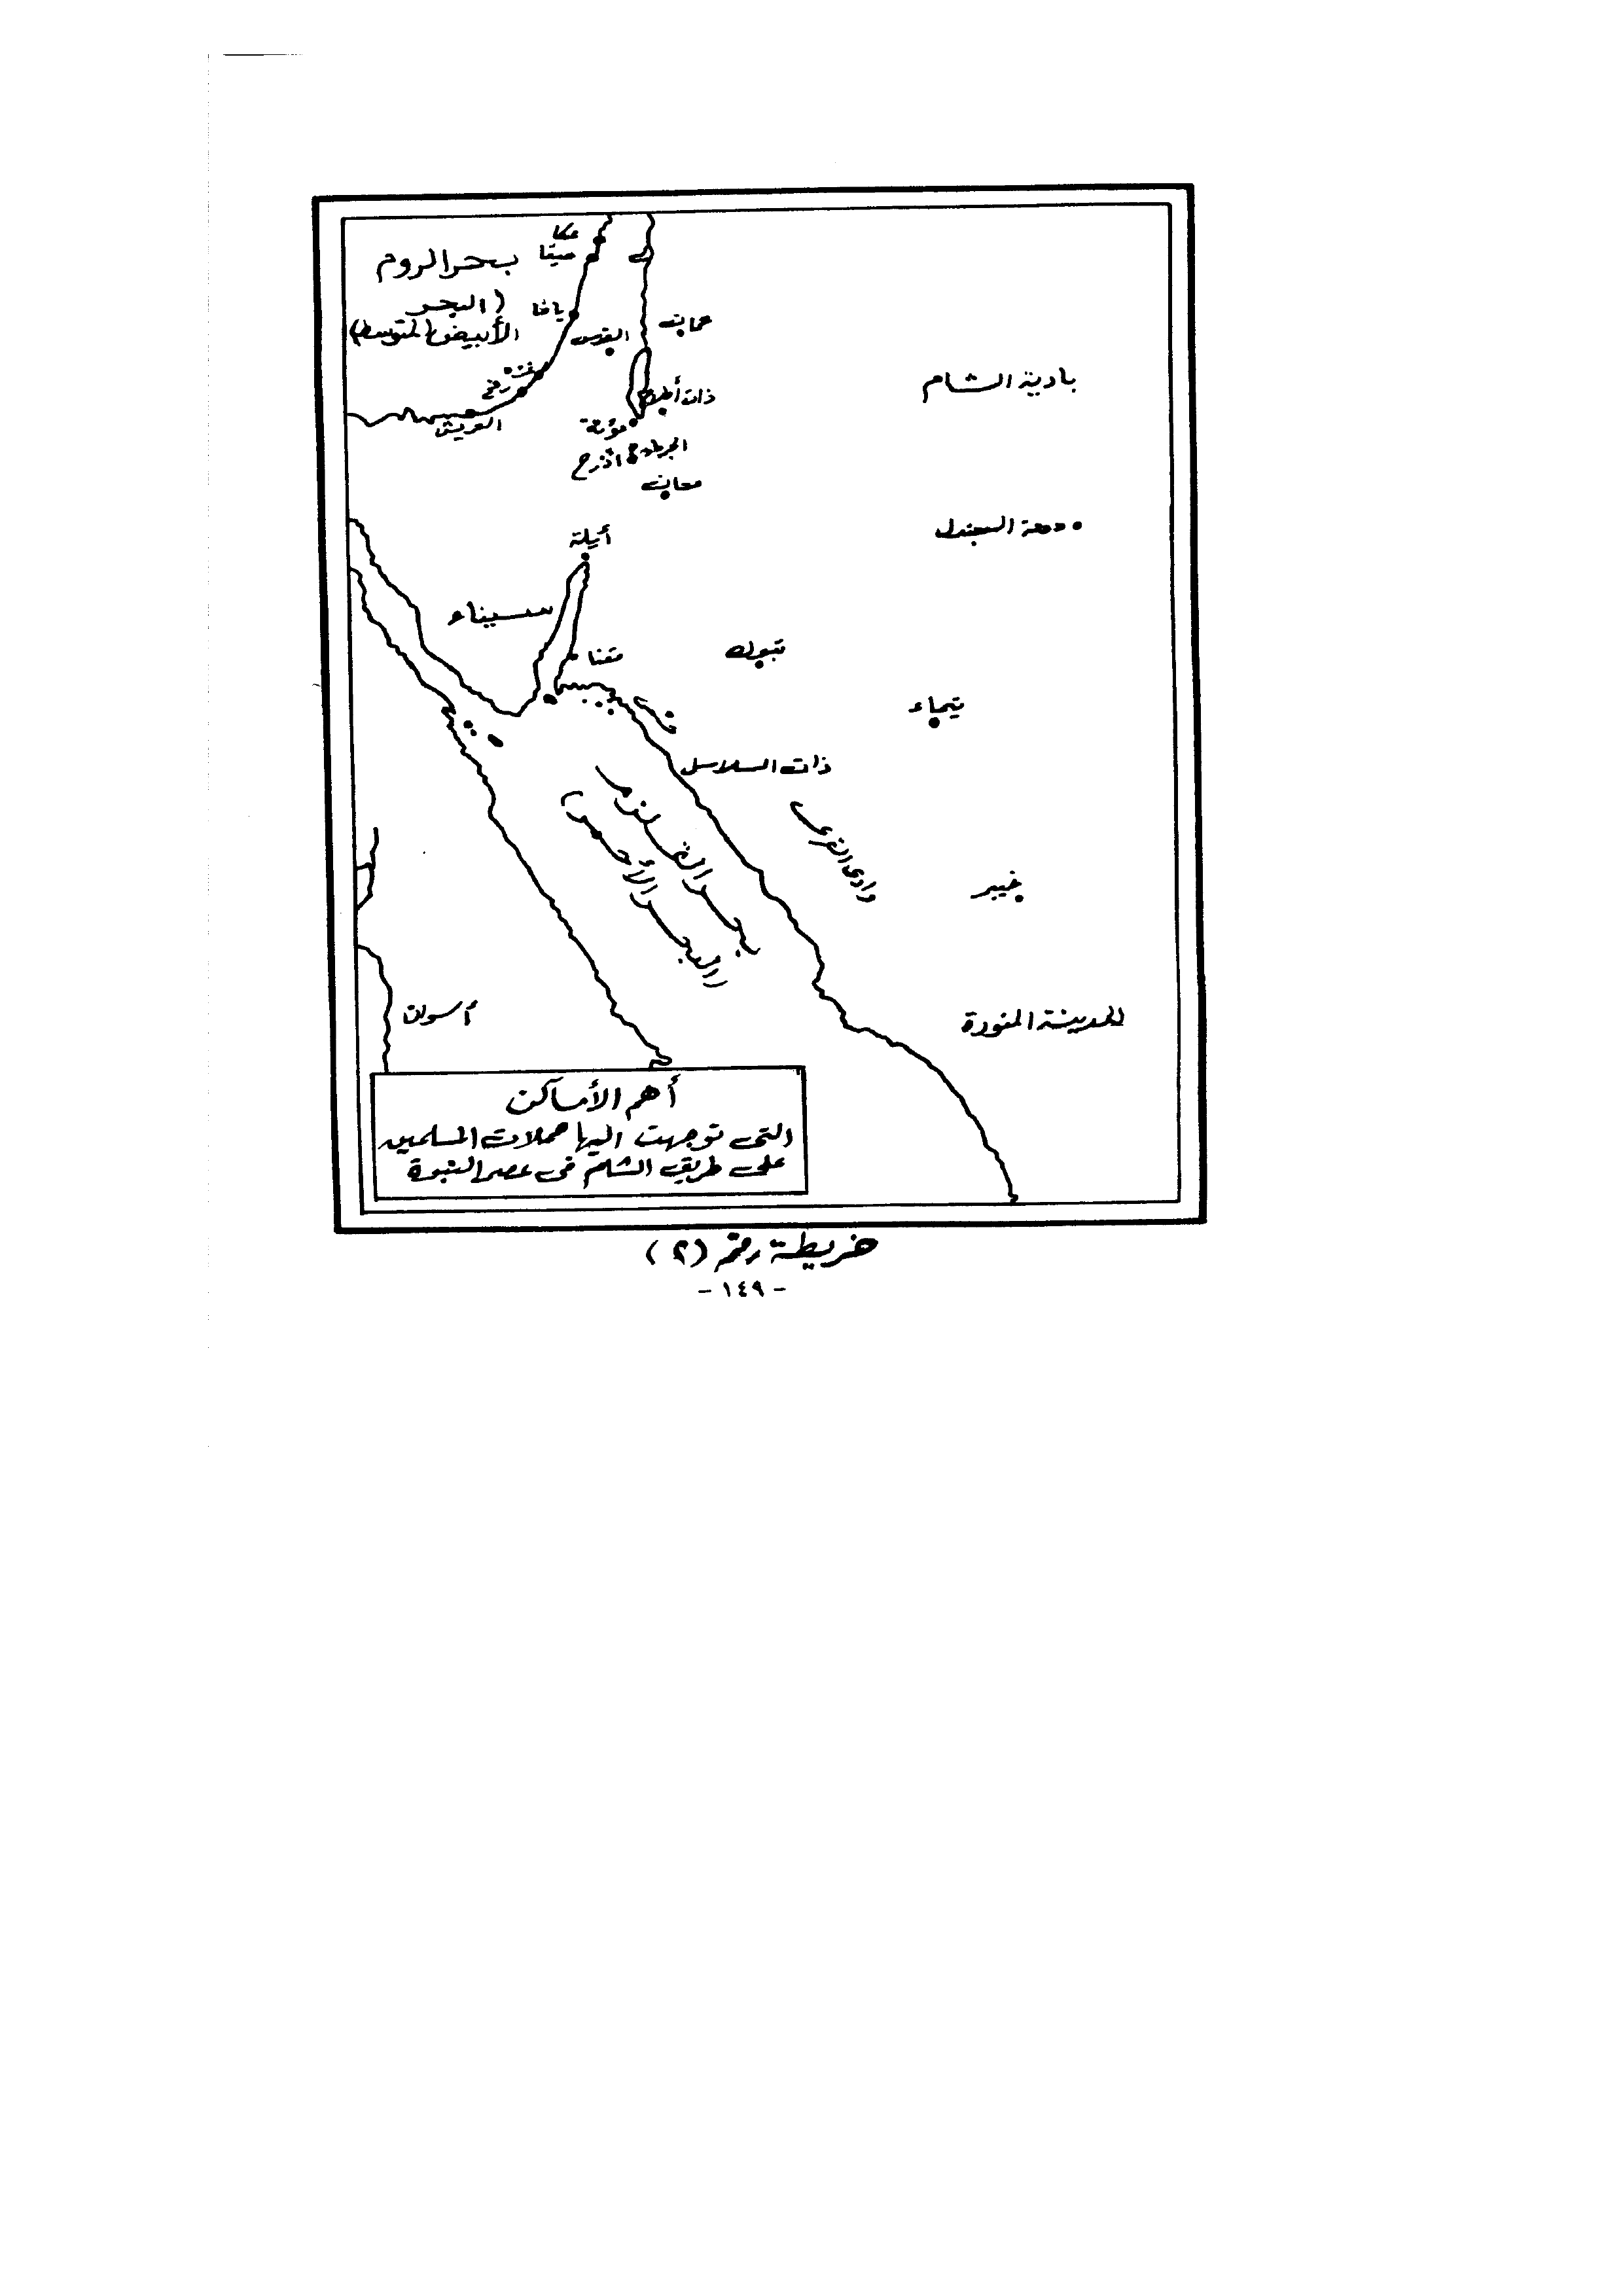 عكا
حيفا
بحر الروم
(البحر
الأبيض المتوسط)
يافا
القدس
عمان
غزة
رفح
العريش
ذات أطلاح
مؤتة
الجرباء
أذرح
معان
بادية الشام
دومة الجندل
أيلة
سيناء
مقنا
تبوك
تيماء
ذات السلاسل
وادى القرى
خيبر
بحر القلزم
(البحر الأحمر)
المدينة المنورة
أسوان
أهم الأماكن
التى توجهت اليها حملات المسلمين
على طريق الشام فى عصر النبوة
خريطة رقم (٢)
- ١٤٩ -